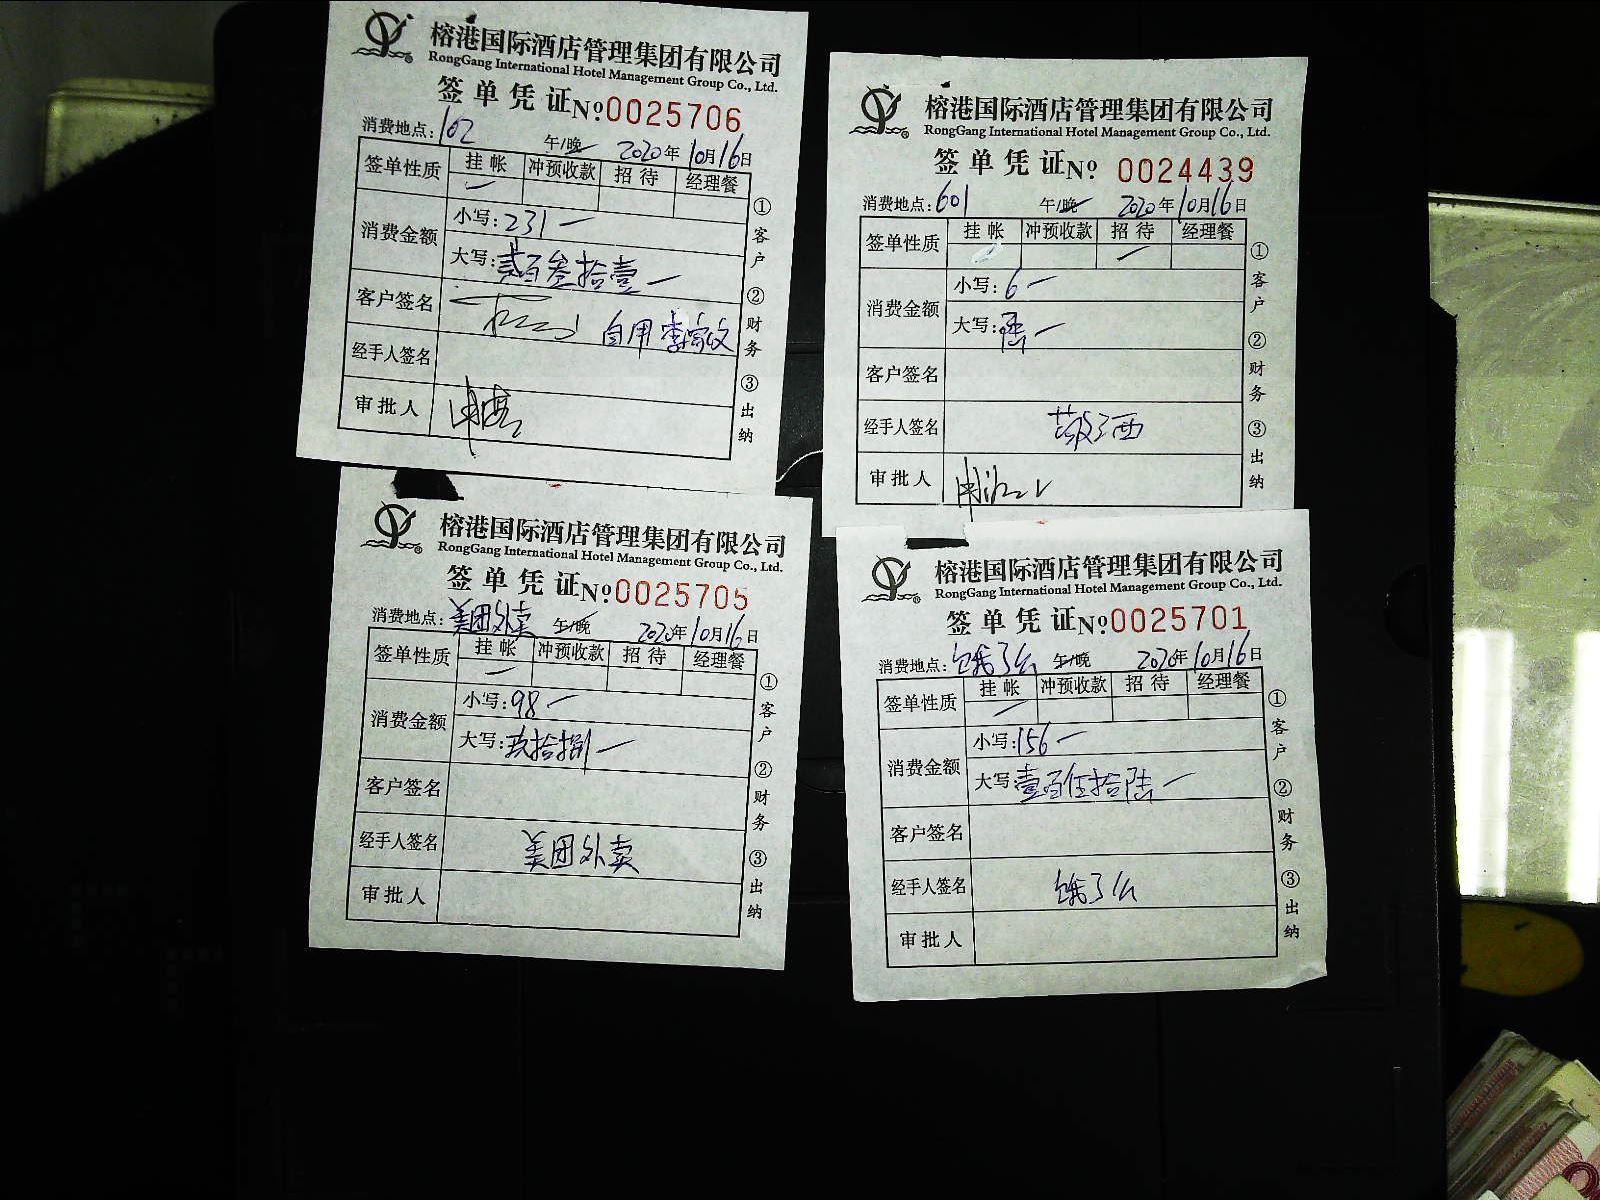 榕港国际酒店管理集团有限公司
RongGang International Hotel Management Group Co., Ltd.
签单凭证 №0025706
消费地点:102 午/晚 2020年10月16日
签单性质 挂帐 冲预收款 招待 经理餐
消费金额
小写:231—
大写:贰百叁拾壹—
客户签名 自用
经手人签名
审批人
①客户 ②财务 ③出纳
榕港国际酒店管理集团有限公司
RongGang International Hotel Management Group Co., Ltd.
签单凭证 №0024439
消费地点:601 午/晚 2020年10月16日
签单性质 挂帐 冲预收款 招待 经理餐
消费金额
小写:6—
大写:陆—
客户签名
经手人签名
审批人
①客户 ②财务 ③出纳
榕港国际酒店管理集团有限公司
RongGang International Hotel Management Group Co., Ltd.
签单凭证 №0025705
消费地点:美团外卖 午/晚 2020年10月16日
签单性质 挂帐 冲预收款 招待 经理餐
消费金额
小写:98—
大写:玖拾捌—
客户签名
经手人签名 美团外卖
审批人
①客户 ②财务 ③出纳
榕港国际酒店管理集团有限公司
RongGang International Hotel Management Group Co., Ltd.
签单凭证 №0025701
消费地点:饿了么 午/晚 2020年10月16日
签单性质 挂帐 冲预收款 招待 经理餐
消费金额
小写:156—
大写:壹百伍拾陆—
客户签名
经手人签名 饿了么
审批人
①客户 ②财务 ③出纳